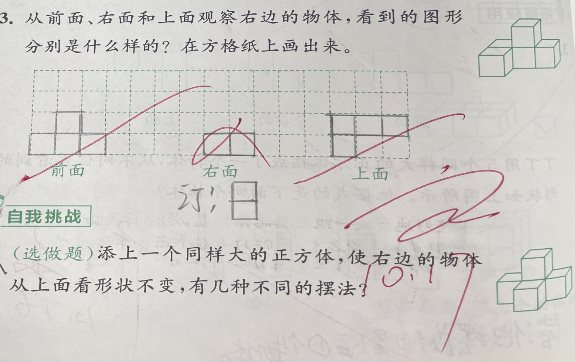 3. 从前面、右面和上面观察右边的物体,看到的图形
分别是什么样的?在方格纸上画出来。
前面 右面 上面
订:
自我挑战
(选做题)添上一个同样大的正方体,使右边的物体
从上面看形状不变,有几种不同的摆法?
10.17